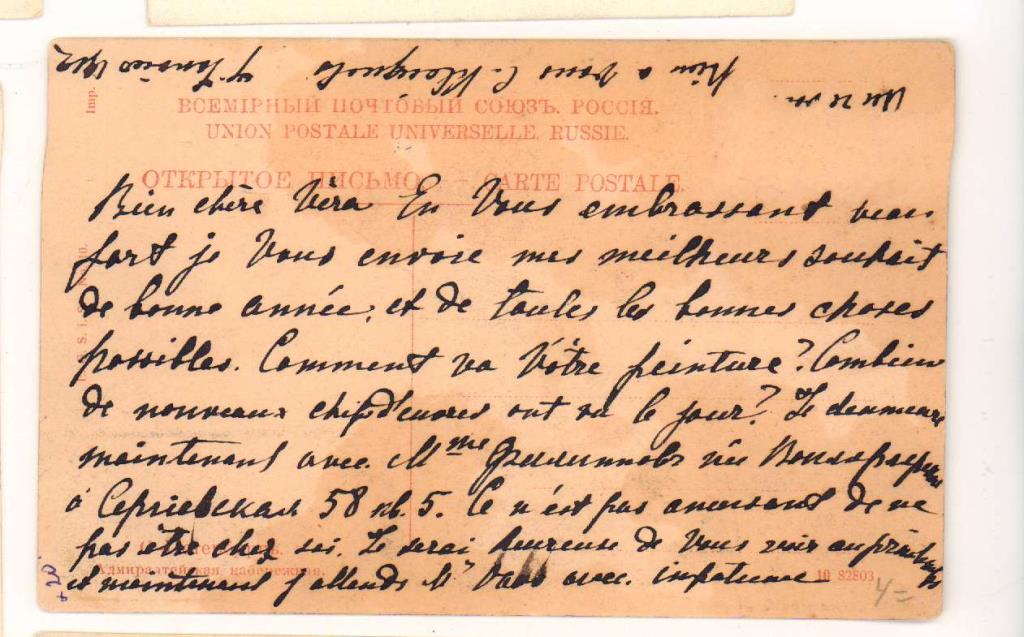 Bien à Vous
Janvier 1912
Imp.
ВСЕМІРНЫЙ ПОЧТОВЫЙ СОЮЗЪ. РОССІЯ.
UNION POSTALE UNIVERSELLE. RUSSIE.
ОТКРЫТОЕ ПИСЬМО. — CARTE POSTALE.
Bien chère Véra En Vous embrassant bien
fort je Vous envoie mes meilheurs souhait
de bonne année, et de toutes les bonnes choses
possibles. Comment va Vôtre peinture? Combien
de nouveaux ont vu le jour? Je demeure
maintenant avec Mme Филипповъ née
à Сергіевская 58 кв. 5. Ce n'est pas amusant de ne
pas être chez soi. Je serai heureuse de Vous voir au printemps
Адмиралтейская набережная.
et maintenant j'attends Mr avec impatience
10 82803
+ 20.
4=